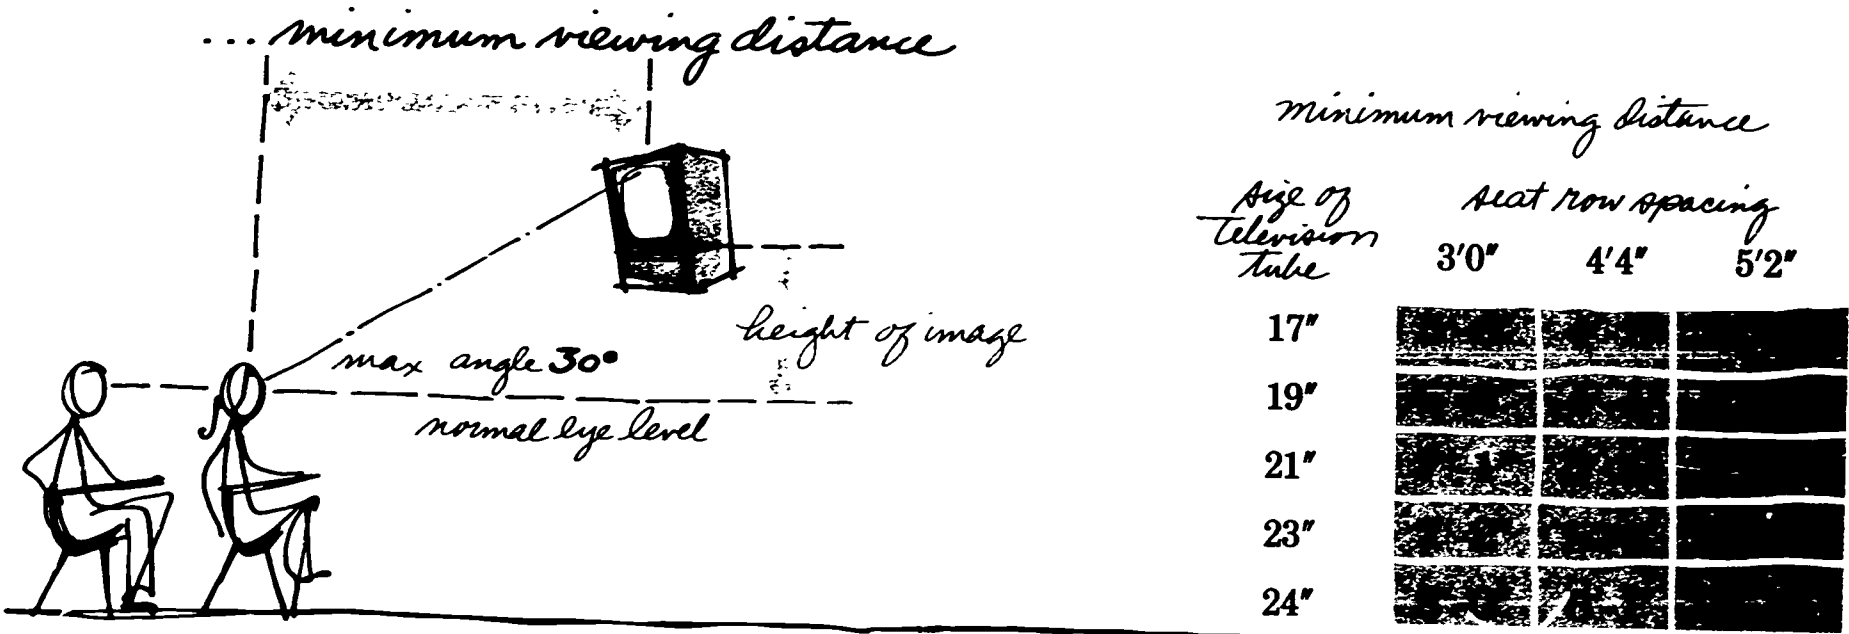 ... minimum viewing distance
max angle 30°
normal eye level
height of image
minimum viewing distance
size of television tube
seat row spacing
3'0" 4'4" 5'2"
17"
19"
21"
23"
24"